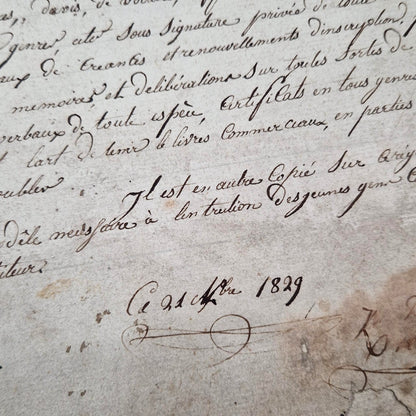 , davis, de
genres, actes sous signature privée de toute
aux de creantes et renouvellements d'inscription,
memoires, et délibérations sur toutes sortes de
verbaux de toute espèce, Certificats en tous genre
l'art de tenir les livres commerciaux, en parties
oubles
Il est en outre Copié sur
dèle nécessaire à l'intrution des jeunes gens
tituteur.
Ce 21 1829